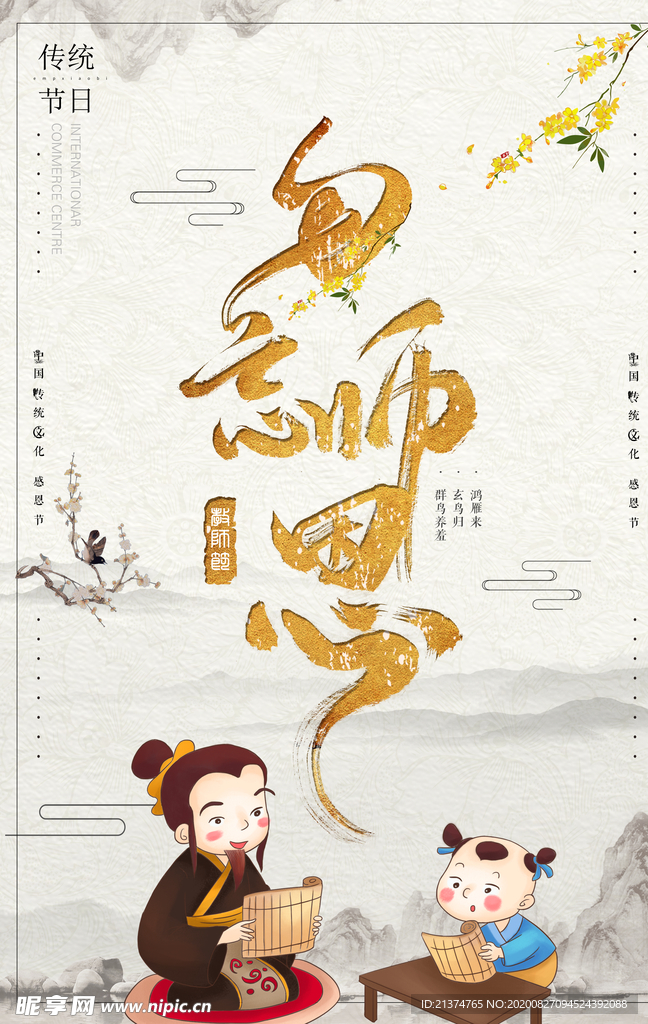 传统
empxiaohi
节日
INTERNATIONAR
COMMERCE CENTRE
勿忘师恩
教师节
鸿雁来
玄鸟归
群鸟养羞
中国传统文化 感恩节
中国传统文化 感恩节
昵享网 www.nipic.cn
ID:21374765 NO:20200827094524392088